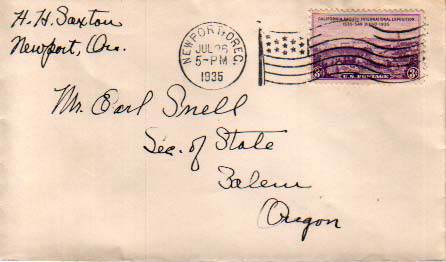 H. H. Saxton
Newport, Ore.
NEWPORT, OREG.
JUL 26
5-PM
1935
CALIFORNIA PACIFIC INTERNATIONAL EXPOSITION
1935-SAN DIEGO-1935
3¢ U.S. POSTAGE 3¢
Mr. Earl Snell
Sec. of State
Salem
Oregon